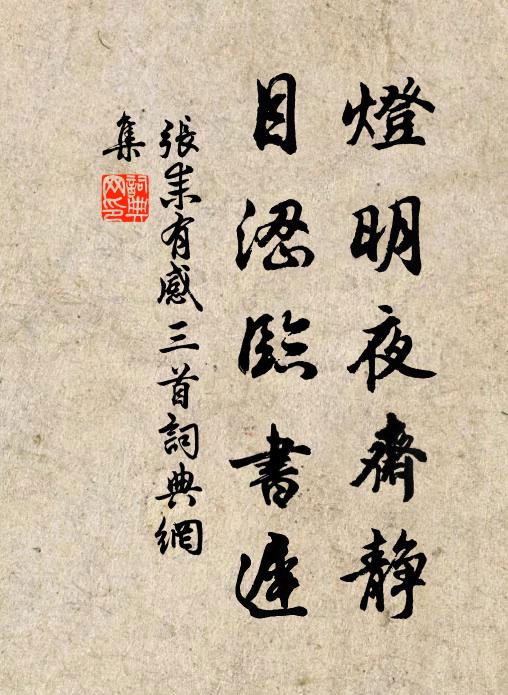 燈明夜齋靜
目澀臨書遲
張耒有感三首詞典網
集
詞典网印